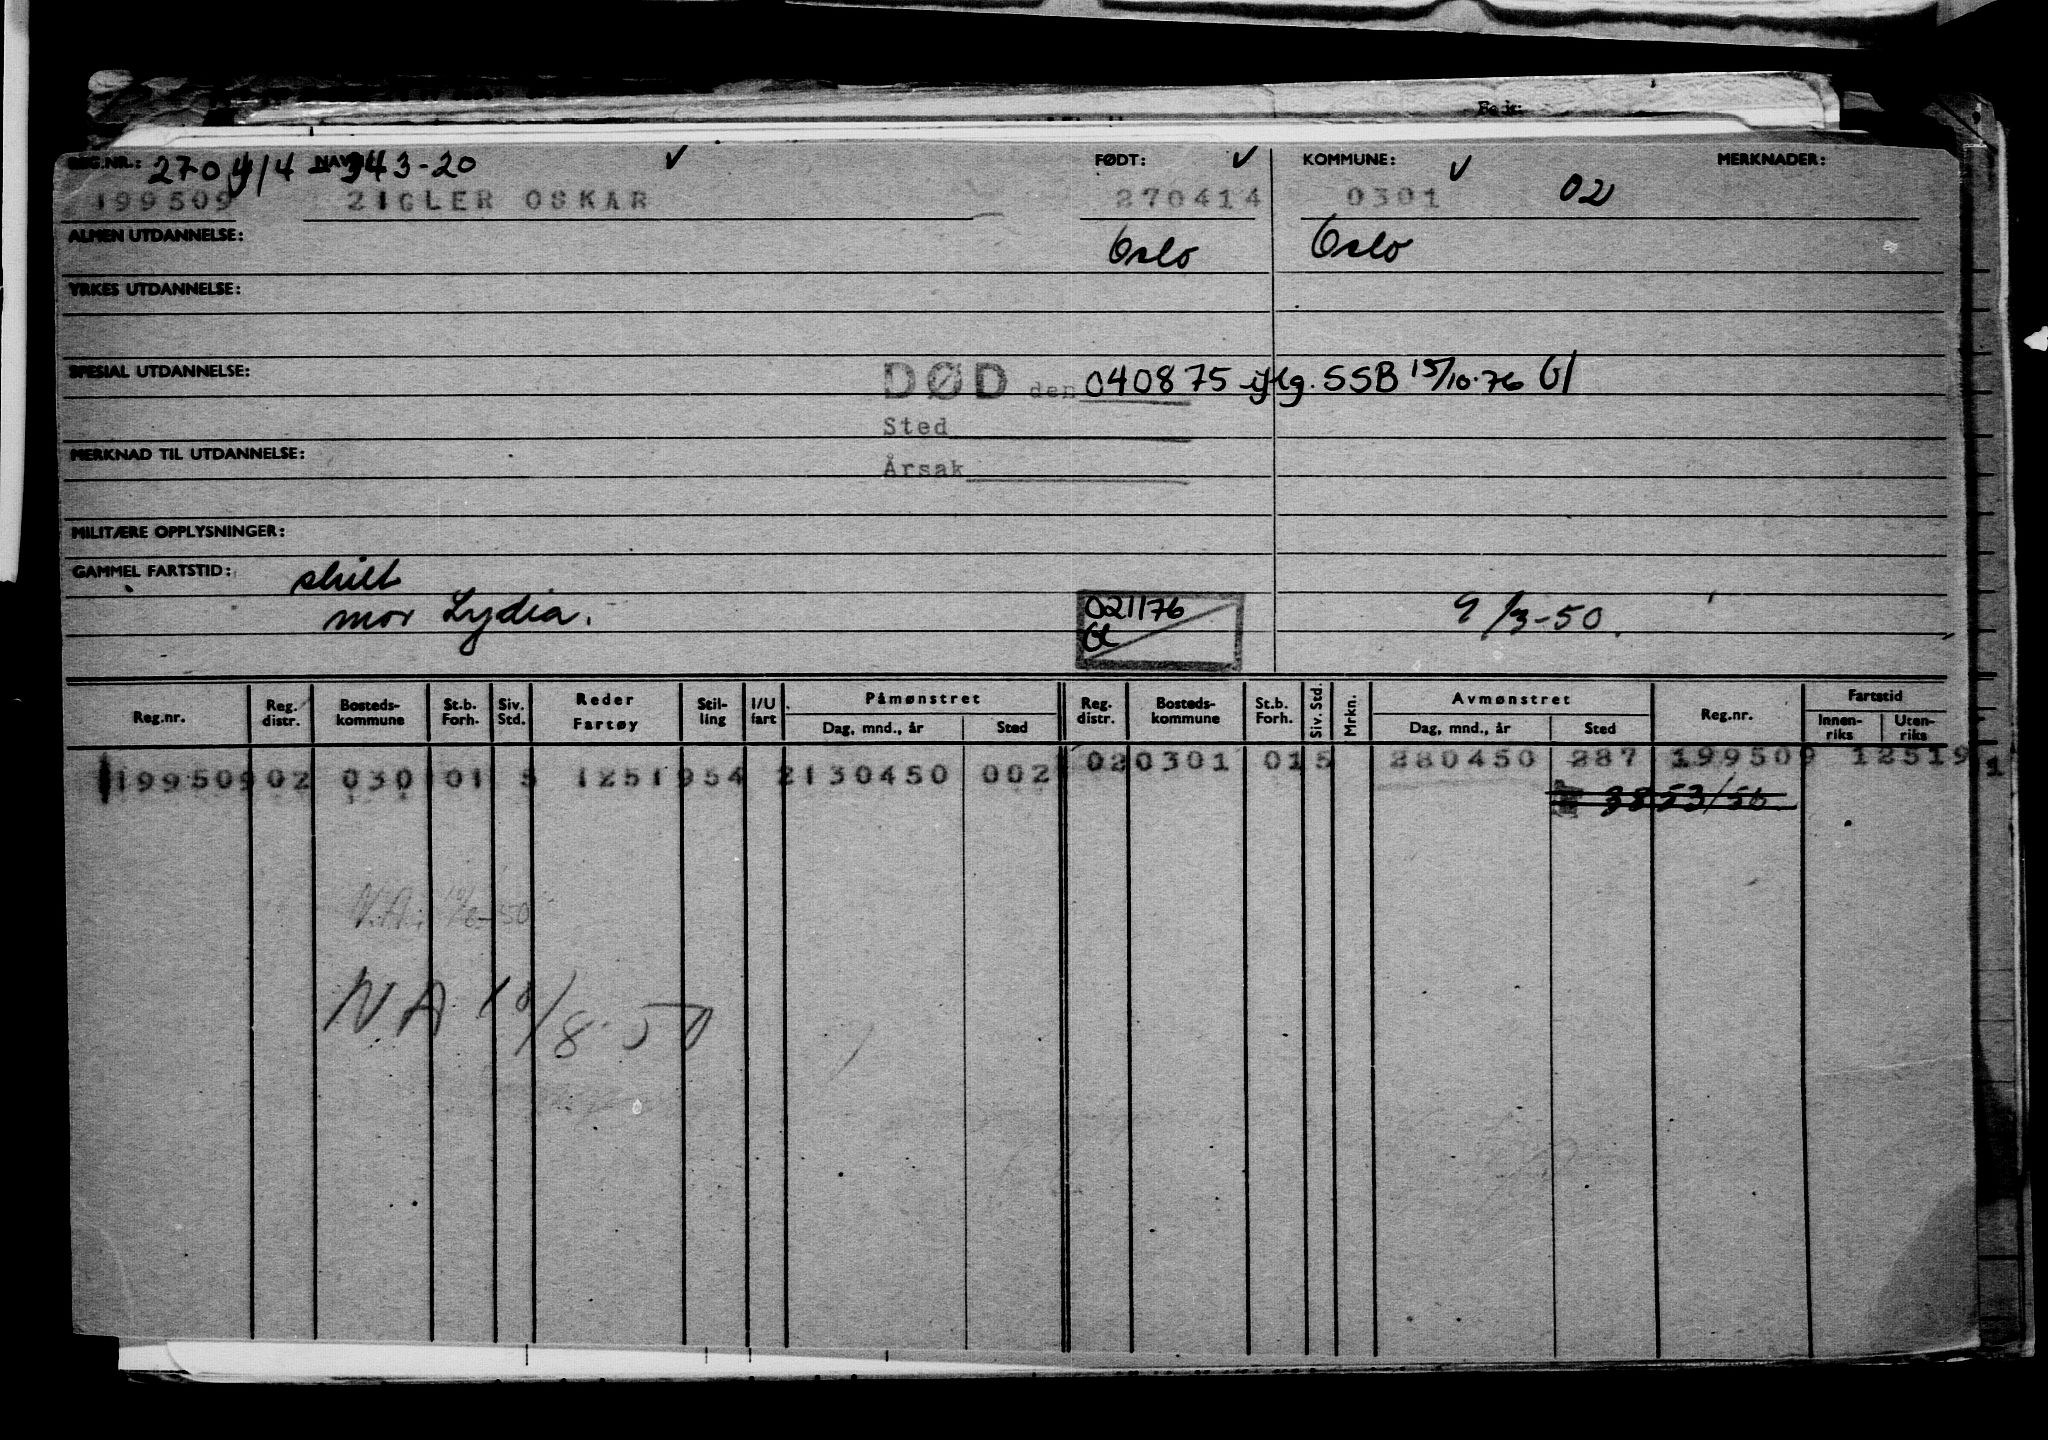 REG.NR.: 270414 NAVN 343-20 ✓ FØDT: ✓ KOMMUNE: ✓ MERKNADER:
199509 ZIGLER OSKAR 270414 0301 02
ALMEN UTDANNELSE: Oslo Oslo
YRKES UTDANNELSE:
SPESIAL UTDANNELSE: DØD den 040875 iflg. SSB 15/10-76 Gl
Sted
MERKNAD TIL UTDANNELSE:
Årsak
MILITÆRE OPPLYSNINGER:
GAMMEL FARTSTID: skilt
mor Lydia. 021176 9/3-50.
Gl
Reg.nr. Reg. distr. Bosteds-kommune St.b. Forh. Siv. Std. Reder Fartøy Stil-ling I/U fart Påmønstret Dag, mnd., år Sted Reg. distr. Bosteds-kommune St.b. Forh. Siv. Std. Mrkn. Avmønstret Dag, mnd., år Sted Reg.nr. Fartstid Innen-riks Uten-riks
199509 02 0301 01 5 1251954 2130450 002 02 0301 01 5 280450 287 199509 12519
3853/50
N.A. 10/6-50
NA 10/8-50